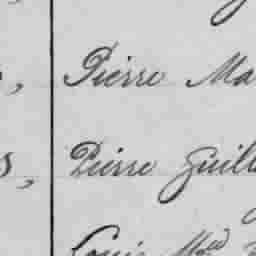 Pierre Ma
Pierre Guill
Louis